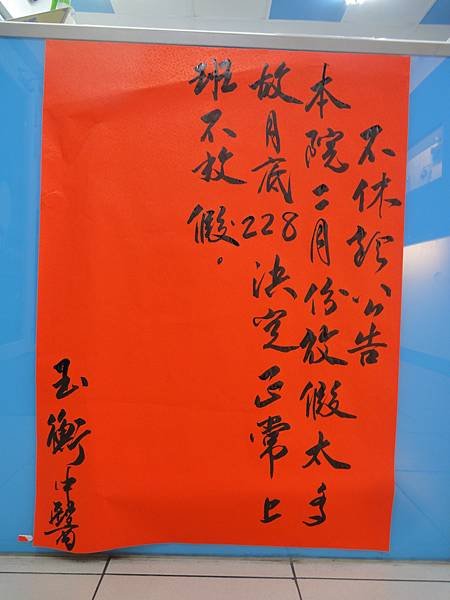 不休診公告
本院二月份放假太多
故月底228決定正常上
班不放假。
玉衡中醫